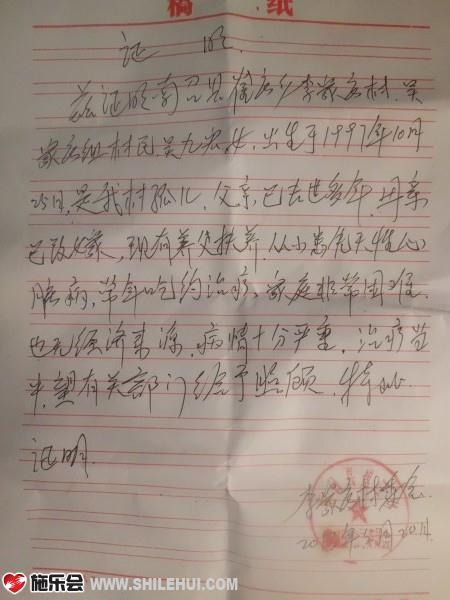 稿 纸
证 明
兹证明南召县崔庄乡李家庄村吴
家庄组村民吴九农 女，出生于1997年10月
25日，是我村孤儿，父亲已去世多年，母亲
已改嫁，现有养父扶养，从小患先天性心
脏病，常年吃药治疗，家庭非常困难
也无经济来源，病情十分严重，治疗
望有关部门给予照顾，特此
证明
李家庄村委会
施乐会 WWW.SHILEHUI.COM